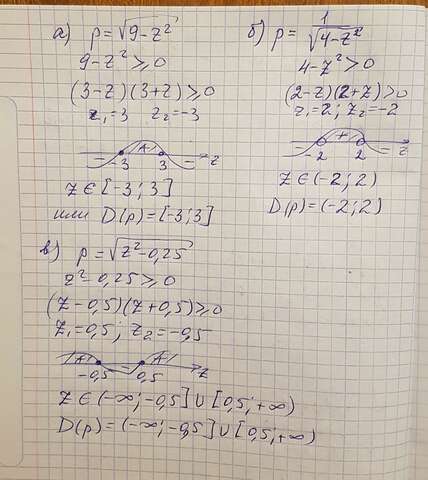 а) p = √(9 - z²)
9 - z² ≥ 0
(3 - z)(3 + z) ≥ 0
z₁ = 3 z₂ = -3
- + -
-3 3 z
z ∈ [-3; 3]
или D(p) = [-3; 3]
б) p = 1/√(4 - z²)
4 - z² > 0
(2 - z)(2 + z) > 0
z₁ = 2; z₂ = -2
- + -
-2 2 z
z ∈ (-2; 2)
D(p) = (-2; 2)
в) p = √(z² - 0,25)
z² - 0,25 ≥ 0
(z - 0,5)(z + 0,5) ≥ 0
z₁ = 0,5; z₂ = -0,5
+ - +
-0,5 0,5 z
z ∈ (-∞; -0,5] ∪ [0,5; +∞)
D(p) = (-∞; -0,5] ∪ [0,5; +∞)